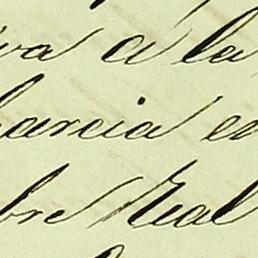 va á la
arcia en
bre Real